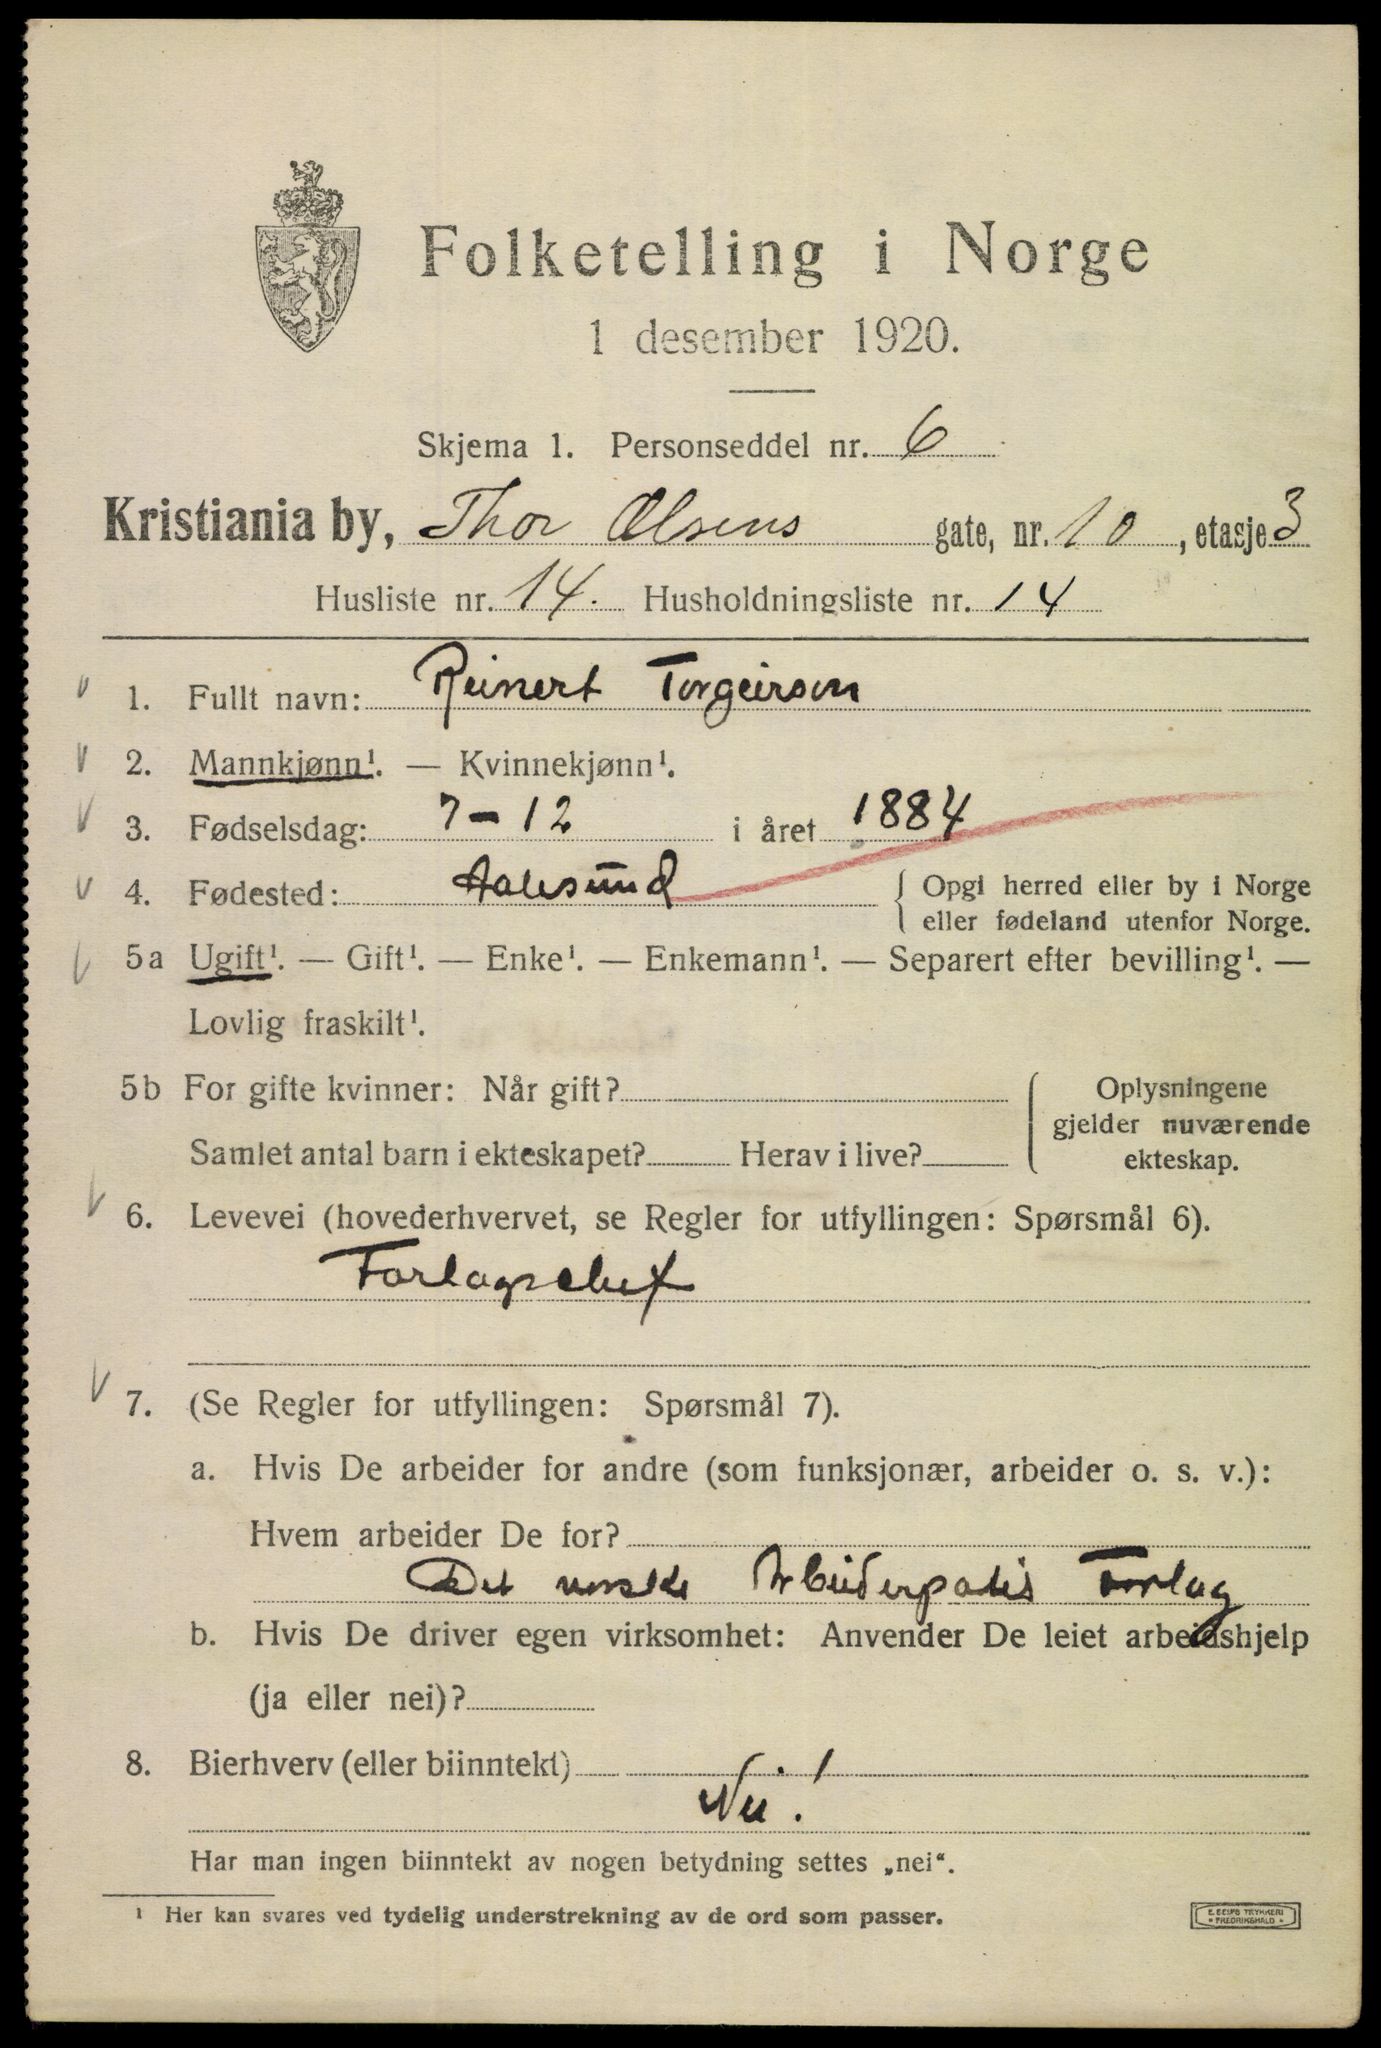 Folketelling i Norge
1 desember 1920.
Skjema 1. Personseddel nr. 6
Kristiania by, Thor Olsens gate, nr. 10, etasje 3
Husliste nr. 14. Husholdningsliste nr. 14
1. Fullt navn: Reinert Torgeirson
2. Mannkjønn¹. — Kvinnekjønn¹.
3. Fødselsdag: 7-12 i året 1884
4. Fødested: Aalesund { Opgi herred eller by i Norge
eller fødeland utenfor Norge.
5a Ugift¹. — Gift¹. — Enke¹. — Enkemann¹. — Separert efter bevilling¹. —
Lovlig fraskilt¹.
5b For gifte kvinner: Når gift? Oplysningene
gjelder nuværende
Samlet antal barn i ekteskapet? Herav i live? ekteskap.
6. Levevei (hovederhvervet, se Regler for utfyllingen: Spørsmål 6).
Forlagschef
7. (Se Regler for utfyllingen: Spørsmål 7).
a. Hvis De arbeider for andre (som funksjonær, arbeider o. s. v.):
Hvem arbeider De for?
Det norske Arbeiderpatis Forlag
b. Hvis De driver egen virksomhet: Anvender De leiet arbeidshjelp
(ja eller nei)?
8. Bierhverv (eller biinntekt)
Nei!
Har man ingen biinntekt av nogen betydning settes „nei“.
¹ Her kan svares ved tydelig understrekning av de ord som passer.
E. SEMS TRYKKERI
• FREDRIKSHALD •